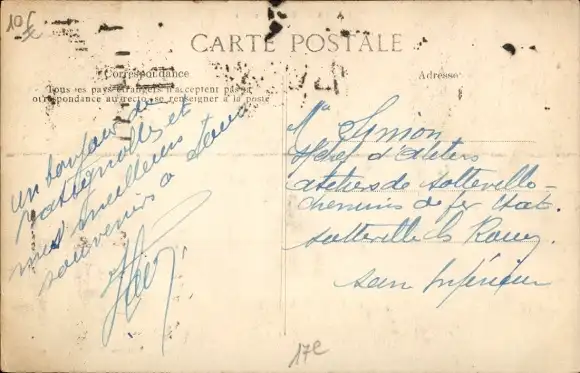 10€
CARTE POSTALE
Correspondance
Tous les pays étrangers n'acceptent pas la
correspondance au recto, se renseigner à la poste
Adresse
un bonjour de
Batignolles et
mes meilleurs
souvenirs a tous
Mr Symon
s/chef d'Ateliers
ateliers de Sotteville
chemins de fer Etat
Sotteville les Rouen
Sein Inférieur
17e